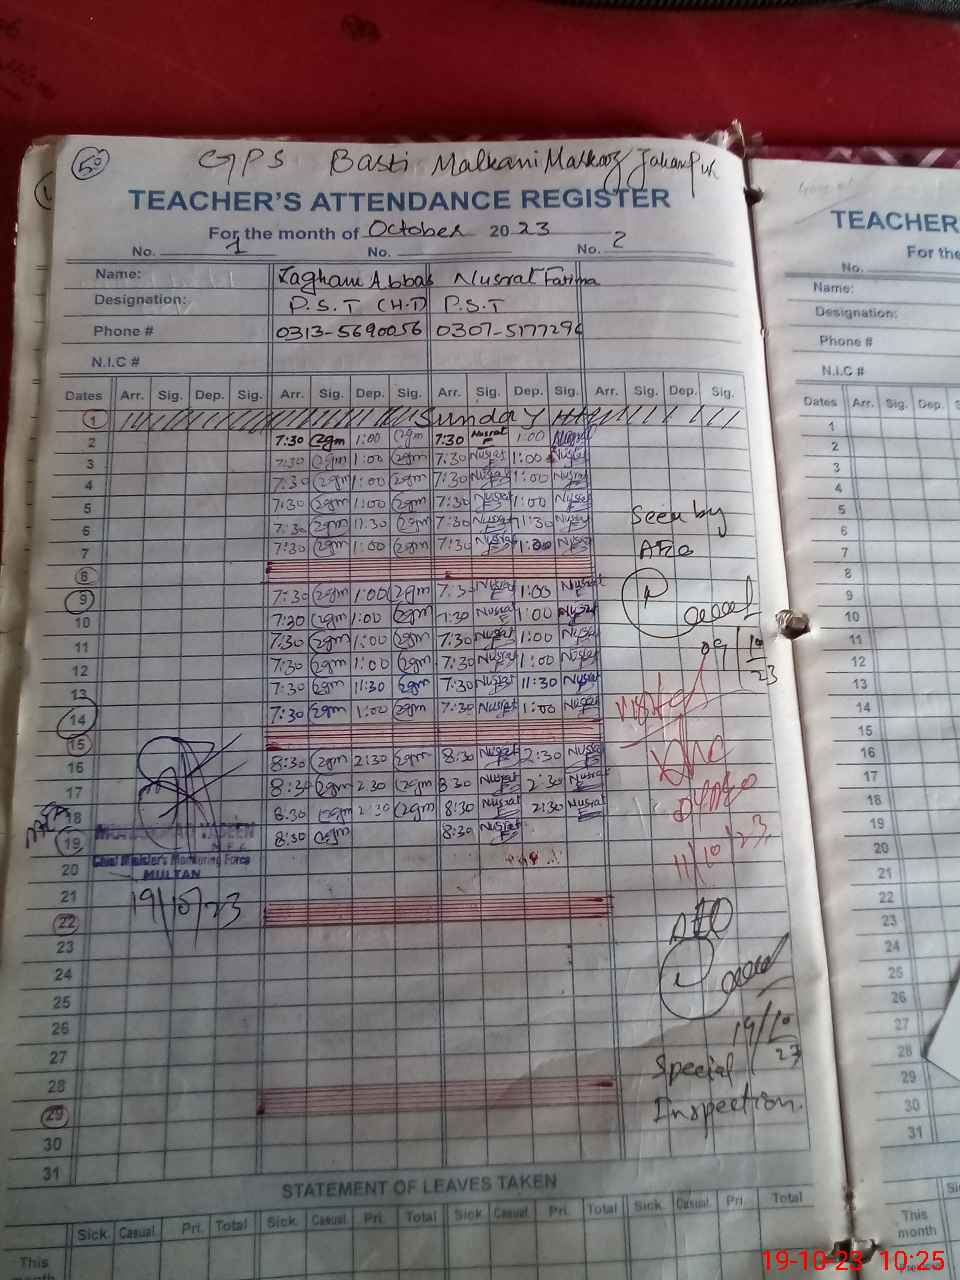 50
GPS Basti Malkani Markaz
TEACHER'S ATTENDANCE REGISTER
For the month of October 2023
No. 1 No. No. 2
Name: Zagham Abbas Nusrat Fatima
Designation: P.S.T (H.T) P.S.T
Phone # 0313-5690056 0307-5177296
N.I.C #
Dates Arr. Sig. Dep. Sig. Arr. Sig. Dep. Sig. Arr. Sig. Dep. Sig. Arr. Sig. Dep. Sig.
1 Sunday
2 7:30 1:00 7:30 Nusrat F 1:00 Nusrat
3 7:30 1:00 7:30 Nusrat F 1:00 Nusrat
4 7:30 1:00 7:30 Nusrat F 1:00 Nusrat
5 7:30 1:00 7:30 Nusrat F 1:00 Nusrat
6 7:30 11:30 7:30 Nusrat F 11:30 Nusrat
7 7:30 1:00 7:30 Nusrat F 1:00 Nusrat
8
9 7:30 1:00 7:30 Nusrat F 1:00 Nusrat
10 7:30 1:00 7:30 Nusrat F 1:00 Nusrat
11 7:30 1:00 7:30 Nusrat F 1:00 Nusrat
12 7:30 1:00 7:30 Nusrat F 1:00 Nusrat
13 7:30 11:30 7:30 Nusrat 11:30 Nusrat
14 7:30 1:00 7:30 Nusrat F 1:00 Nusrat
15
16 8:30 2:30 8:30 Nusrat F 2:30 Nusrat
17 8:30 2:30 8:30 Nusrat F 2:30 Nusrat
18 8:30 2:30 8:30 Nusrat F 2:30 Nusrat
19 8:30 8:30 Nusrat F
20
21
22
23
24
25
26
27
28
29
30
31
Seen by
AEO
09/10/23
visited
11/10/23
AEO
19/10/23
Special
Inspection.
Chief Minister's Monitoring Force
MULTAN
19/10/23
STATEMENT OF LEAVES TAKEN
Sick. Casual Pri. Total Sick. Casual. Pri. Total Sick. Casual. Pri. Total Sick. Casual. Pri. Total
This
month
TEACHER
For the
No.
Name:
Designation:
Phone #
N.I.C #
Dates Arr. Sig. Dep.
1
2
3
4
5
6
7
8
9
10
11
12
13
14
15
16
17
18
19
20
21
22
23
24
25
26
27
28
29
30
31
This
month
19-10-23 10:25